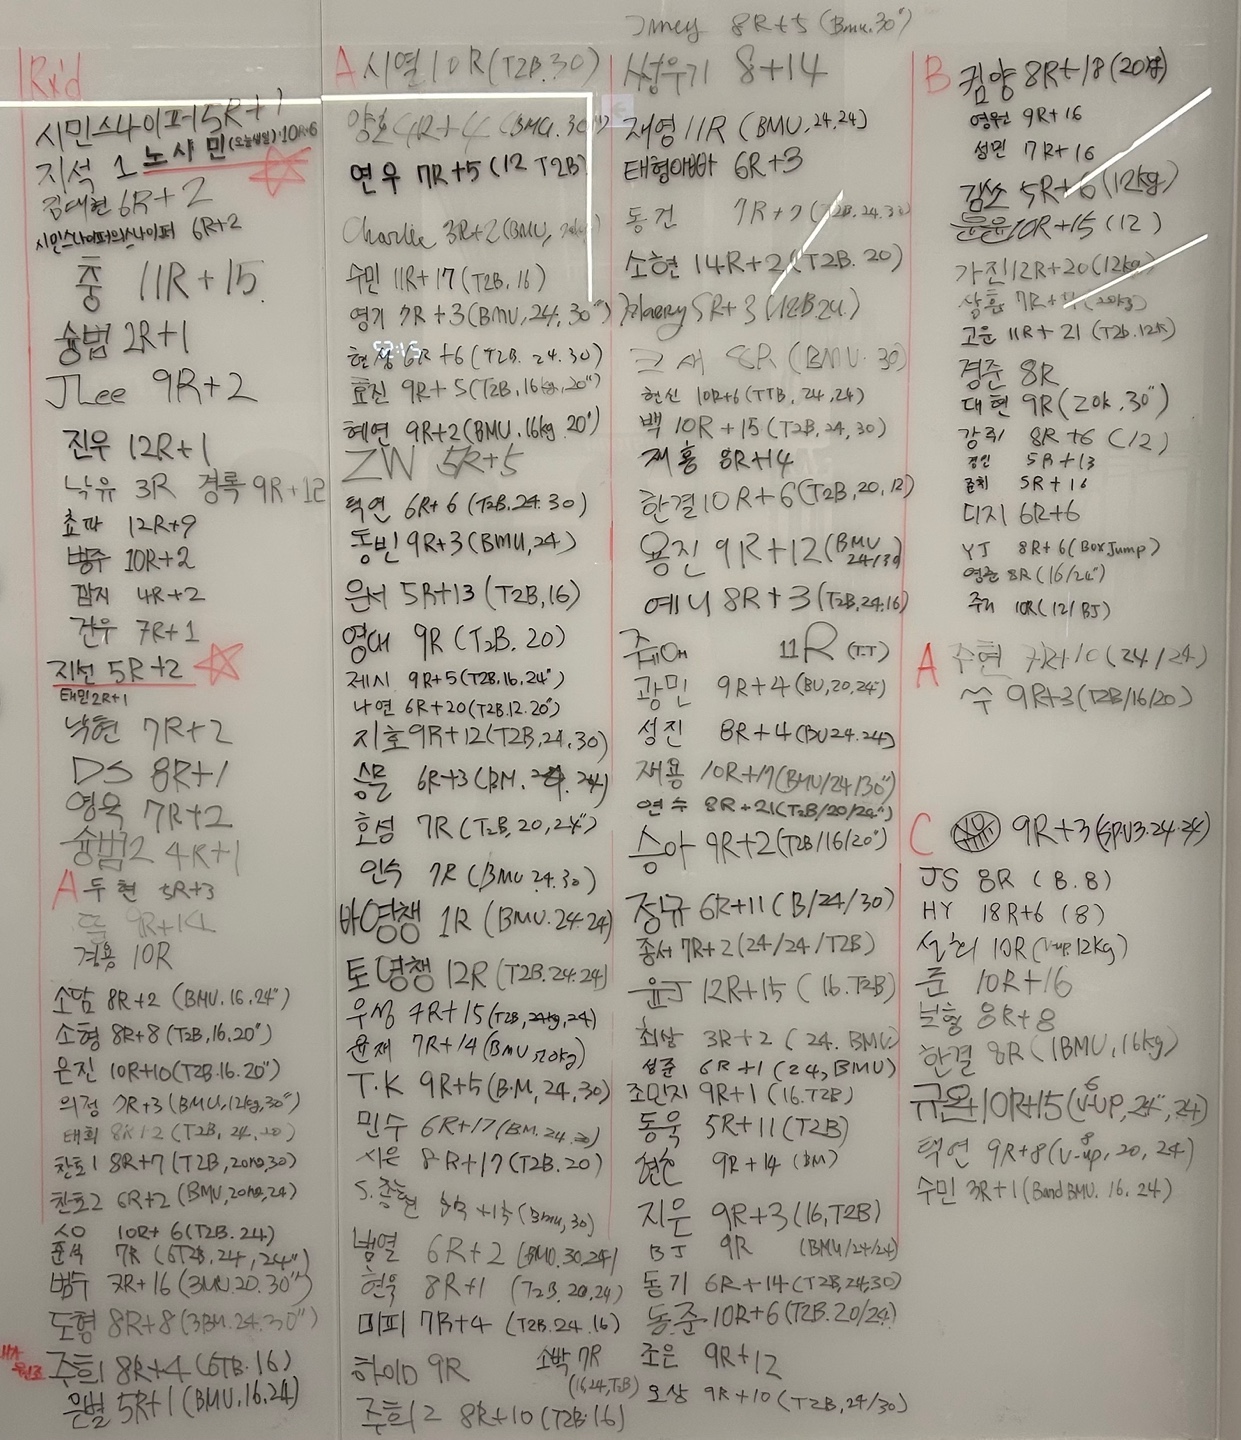 Rx'd
시민스나이퍼 5R+1
지석 1 노샤민(오늘생일)·10R+6
김대현 6R+2
시민스나이퍼의스나이퍼 6R+2
중 11R+15
슝범 2R+1
JLee 9R+2
진우 12R+1
낙유 3R 경록 9R+12
쵸파 12R+9
병주 10R+2
깜지 4R+2
건우 7R+1
지선 5R+2
태민 2R+1
낙현 7R+2
DS 8R+1
영욱 7R+2
슝범2 4R+1
A 두현 5R+3
경용 10R
소담 8R+2 (BMU.16.24")
소형 8R+8 (T2B,16.20")
은진 10R+10(T2B.16.20")
의정 7R+3(BMU,12kg,30")
태희 8R+2 (T2B, 24,20)
찬호1 8R+7 (T2B,20kg,30)
찬호2 6R+2 (BMU,20kg,24)
10R+6(T2B.24)
준석 7R (6T2B,24,24")
범수 7R+16 (3MU.20.30")
도형 8R+8(3BM.24.30")
주희1 8R+4(6TB.16)
은별 5R+1(BMU,16,24)
A 시열 10R(T2B.30)
양호 4R+4 (BMU.30")
연우 7R+5 (12 T2B)
Charlie 3R+2(BMU,
수민 11R+17 (T2B,16)
영기 7R+3(BMU,24,30")
6R+6 (T2B.24.30)
효진 9R+5(T2B,16kg,20")
혜연 9R+2(BMU,16kg.20")
ZW 5R+5
탁연 6R+6 (T2B.24.30)
동빈 9R+3(BMU,24)
은서 5R+13 (T2B,16)
영대 9R (T2B.20)
제시 9R+5(T2B,16,24")
나연 6R+20(T2B.12.20")
지호 9R+12(T2B,24.30)
승문 6R+3(BM. 24)
호성 7R (T2B,20,24")
인수 7R (BMU 24.30)
바영챙 1R (BMU.24.24)
토영챙 12R (T2B.24.24)
우성 7R+15(T2B,24kg,24)
윤재 7R+14(BMU 20kg)
T.K 9R+5(B.M,24,30)
민수 6R+17(BM.24.30)
시은 8R+17(T2B.20)
S.종현 (BMU,30)
범열 6R+2 (BMU.30.24)
현욱 8R+1 (T2B.20,24)
미피 7R+4 (T2B.24.16)
하이D 9R
소박 7R
(16,24,T2B)
주희2 8R+10(T2B.16)
8R+5 (BMU.30")
썽우기 8+14
재영 11R (BMU,24,24)
태형아빠 6R+3
동건 7R+7 (T2B.24.30)
소현 14R+2 (T2B.20)
5R+3 (12B24)
크새 8R (BMU.30)
헌신 10R+6(TTB,24,24)
백 10R+15(T2B,24,30)
재홍 8R+14
한결 10R+6(T2B,20,12)
용진 9R+12(BMU
24/30)
예니 8R+3(T2B,24.16)
쥬니어 11R (T.T)
광민 9R+4(BU,20,24")
성진 8R+4(BU24.24)
재용 10R+17(BMU/24/30")
연수 8R+21(T2B/20/20")
승아 9R+2(T2B/16/20")
정규 6R+11(B/24/30)
종서 7R+2(24/24/T2B)
윤J 12R+15(16.T2B)
최상 3R+2 (24.BMU)
성준 6R+1 (24,BMU)
조민지 9R+1 (16.T2B)
동욱 5R+11(T2B)
9R+14 (BM)
지은 9R+3(16,T2B)
BJ 9R (BMU/24/24)
동기 6R+14(T2B,24,30)
동준 10R+6(T2B.20/24)
조은 9R+12
오상 9R+10 (T2B,24/30)
B 킴양 8R+18(20
영원 9R+16
성민 7R+16
감쏘 5R+6(12kg)
10R+15(12)
가진 12R+20(12kg)
고운 11R+21 (T2b.12k)
경준 8R
대현 9R(20k.30")
강쥐 8R+6 (12)
경인 5R+13
준희 5R+16
디지 6R+6
YJ 8R+6(Box Jump)
영준 8R(16/24")
주기 10R(12/BJ)
A 수현 7R+10(24/24)
쑤 9R+3(T2B/16/20)
C 9R+3(SPU3.24.24)
JS 8R (B.8)
HY 18R+6 (8)
설희 10R(V-up.12kg)
준 10R+16
보형 8R+8
한결 8R(1BMU,16kg)
규온 10R+15(V-up,24",24)
탁연 9R+8(V-up,20,24)
수민 3R+1(Band BMU.16.24)